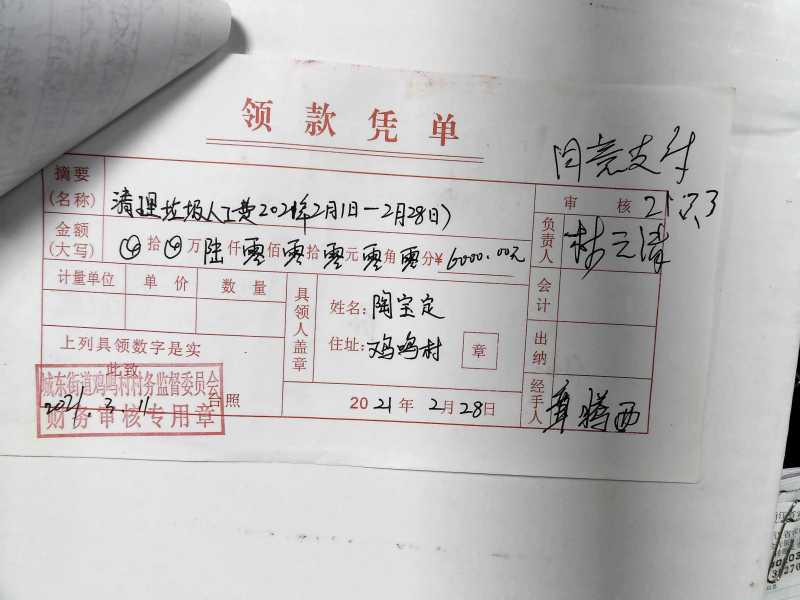 领款凭单
同意支付
摘要
(名称)
清理垃圾人工费2021年2月1日—2月28日)
审核
21.3.3
金额
(大写)
拾 万陆仟零佰零拾零元零角零分¥6000.00元
负责人
林云清
计量单位 单价 数量
具领人盖章
姓名:陶宝定
住址:鸡鸣村
章
会计
出纳
上列具领数字是实
此致
台照
城东街道鸡鸣村村务监督委员会
2021.3.11
财务审核专用章
2021年2月28日
经手人